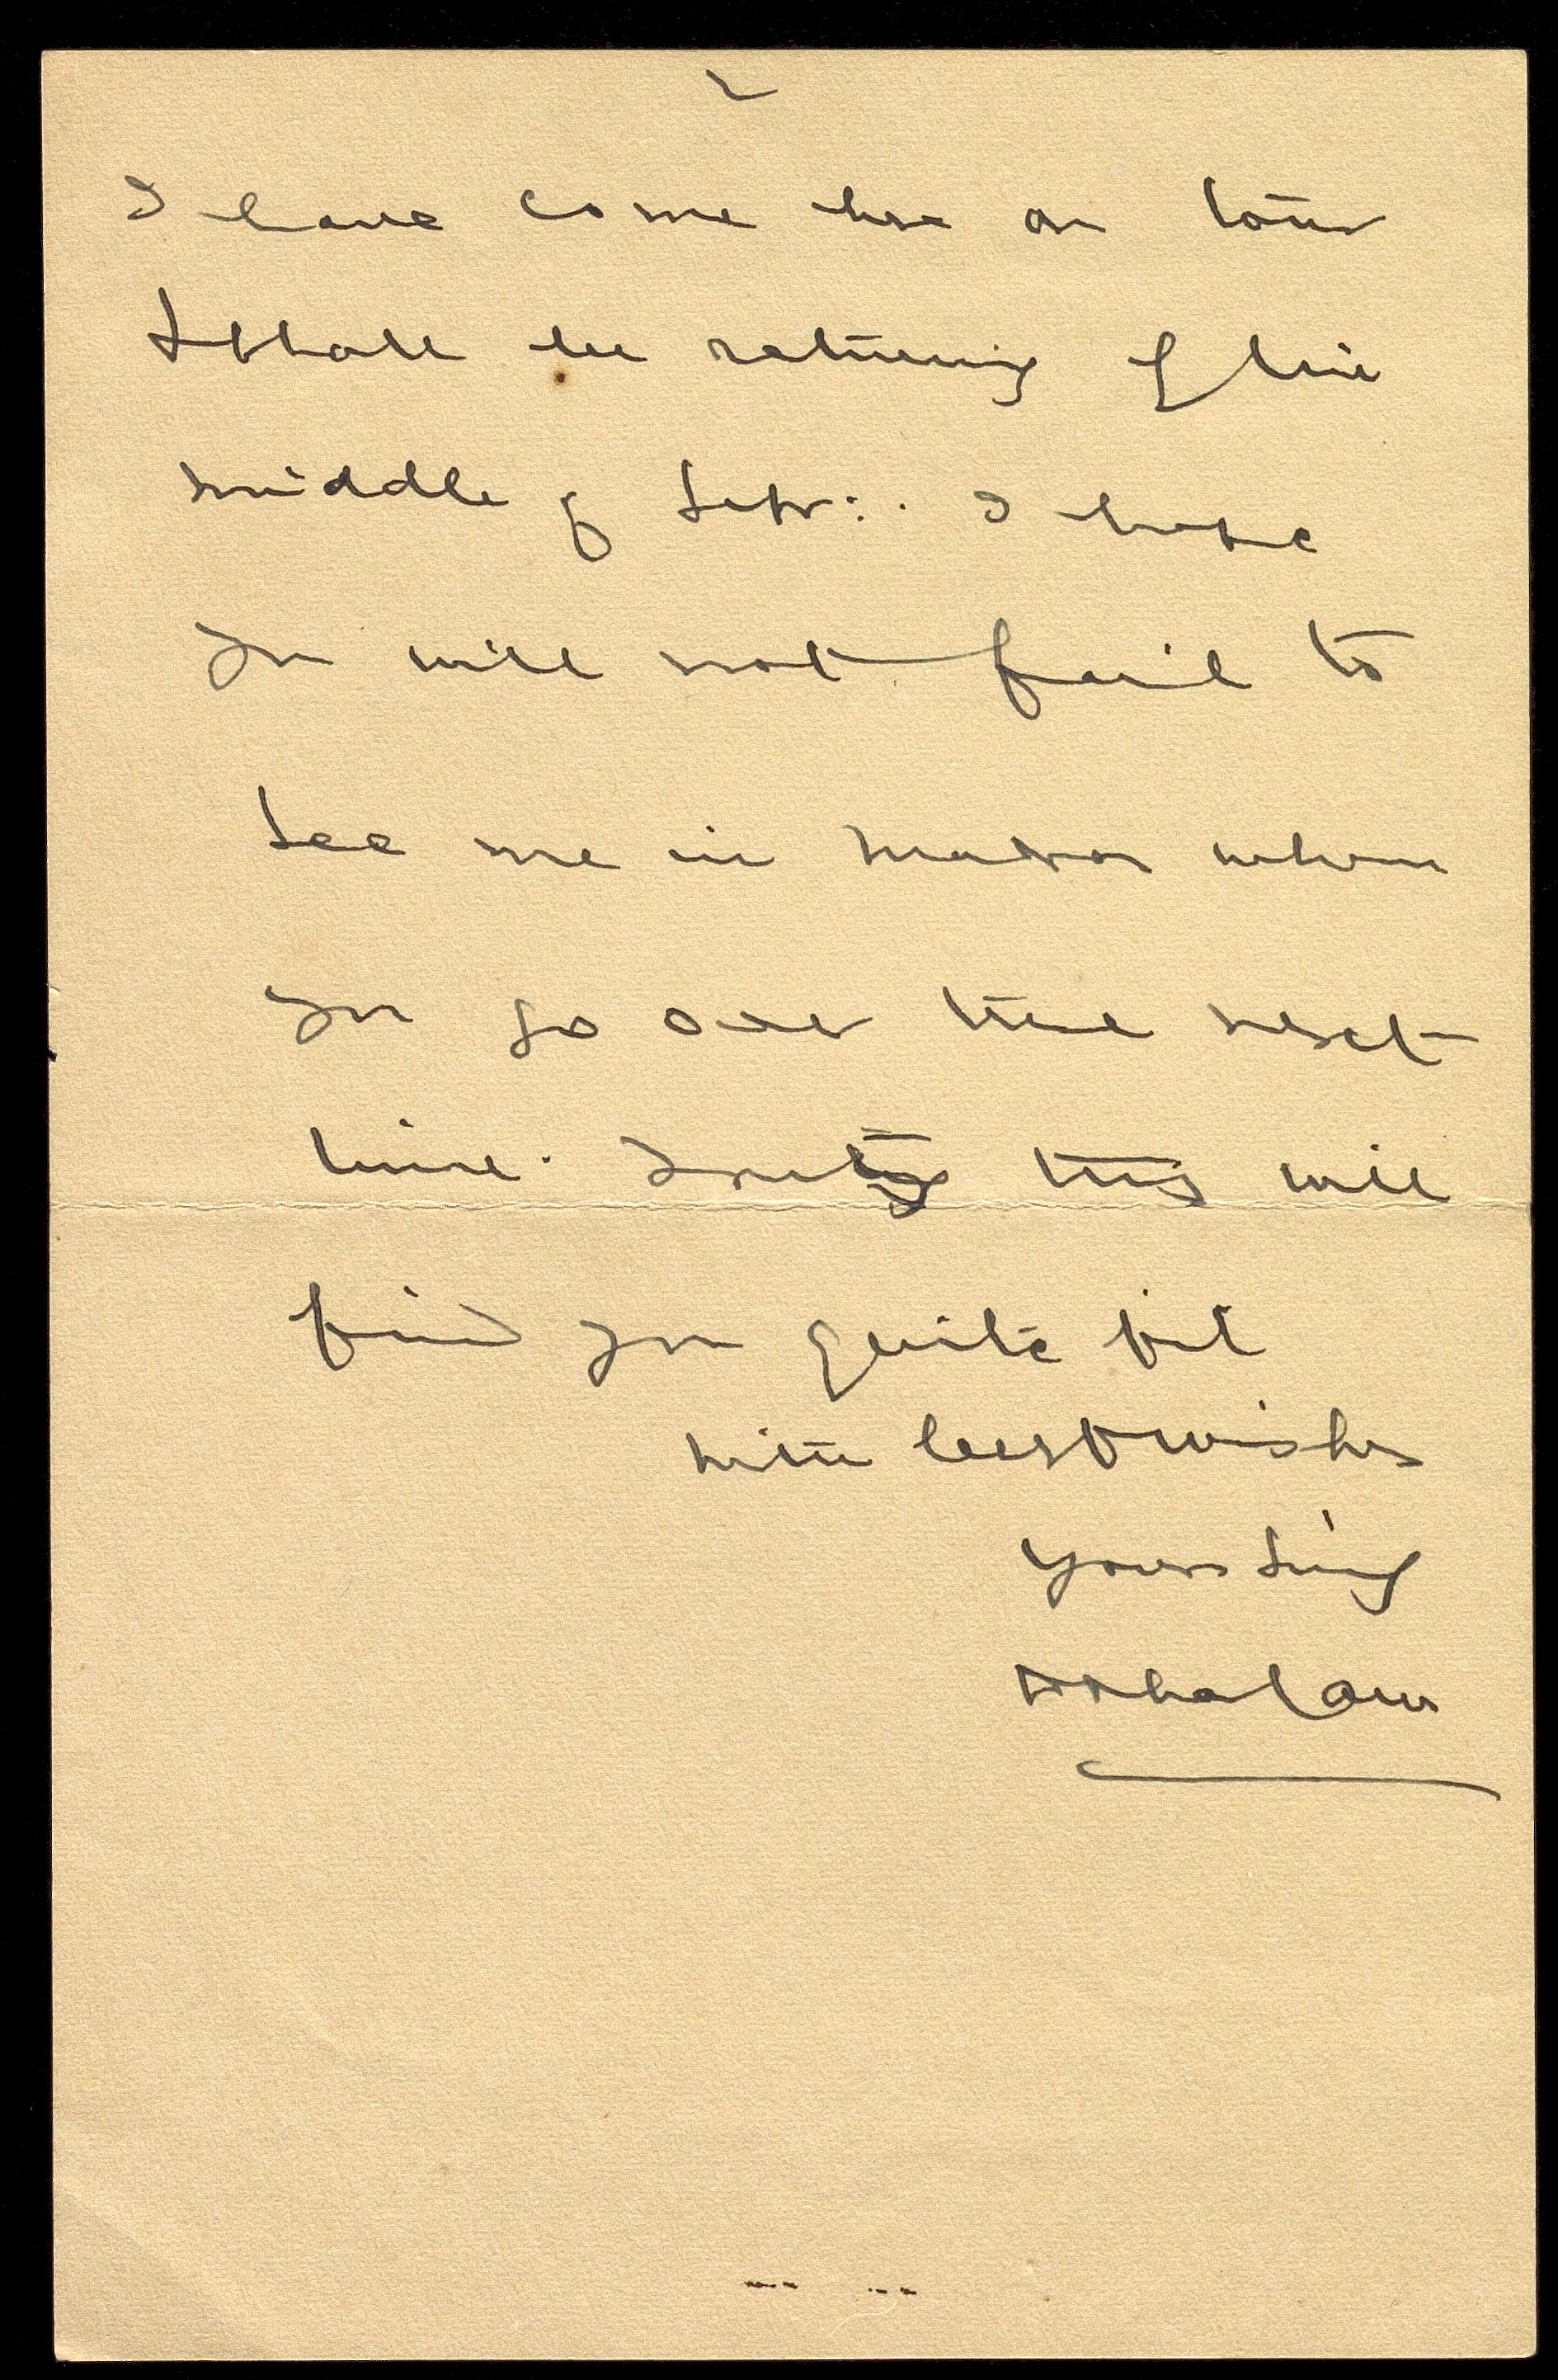 2
I have come here on tour
I shall be returning
middle of Sept: . I hope
you will not fail to
see me in Madras when
you go over there next
time. Trusting this will
find you quite fit
with best wishes
Yours Sinly